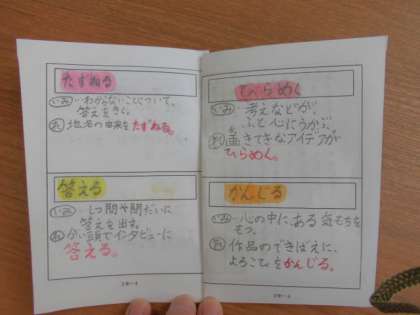 たずねる
(いみ)わからないことについて、
答えをきく。
(れい)地名の由来をたずねる。
答える
(いみ)しつ問や問だいに
答えを出す。
(れい)がい頭でインタビューに
答える。
ひらめく
(いみ)考えなどが、
ふと心にうかぶ。
(れい)画きてきなアイデアが
ひらめく。
かんじる
(いみ)心の中に、ある気もちを
もつ。
(れい)作品のできばえに、
よろこびをかんじる。